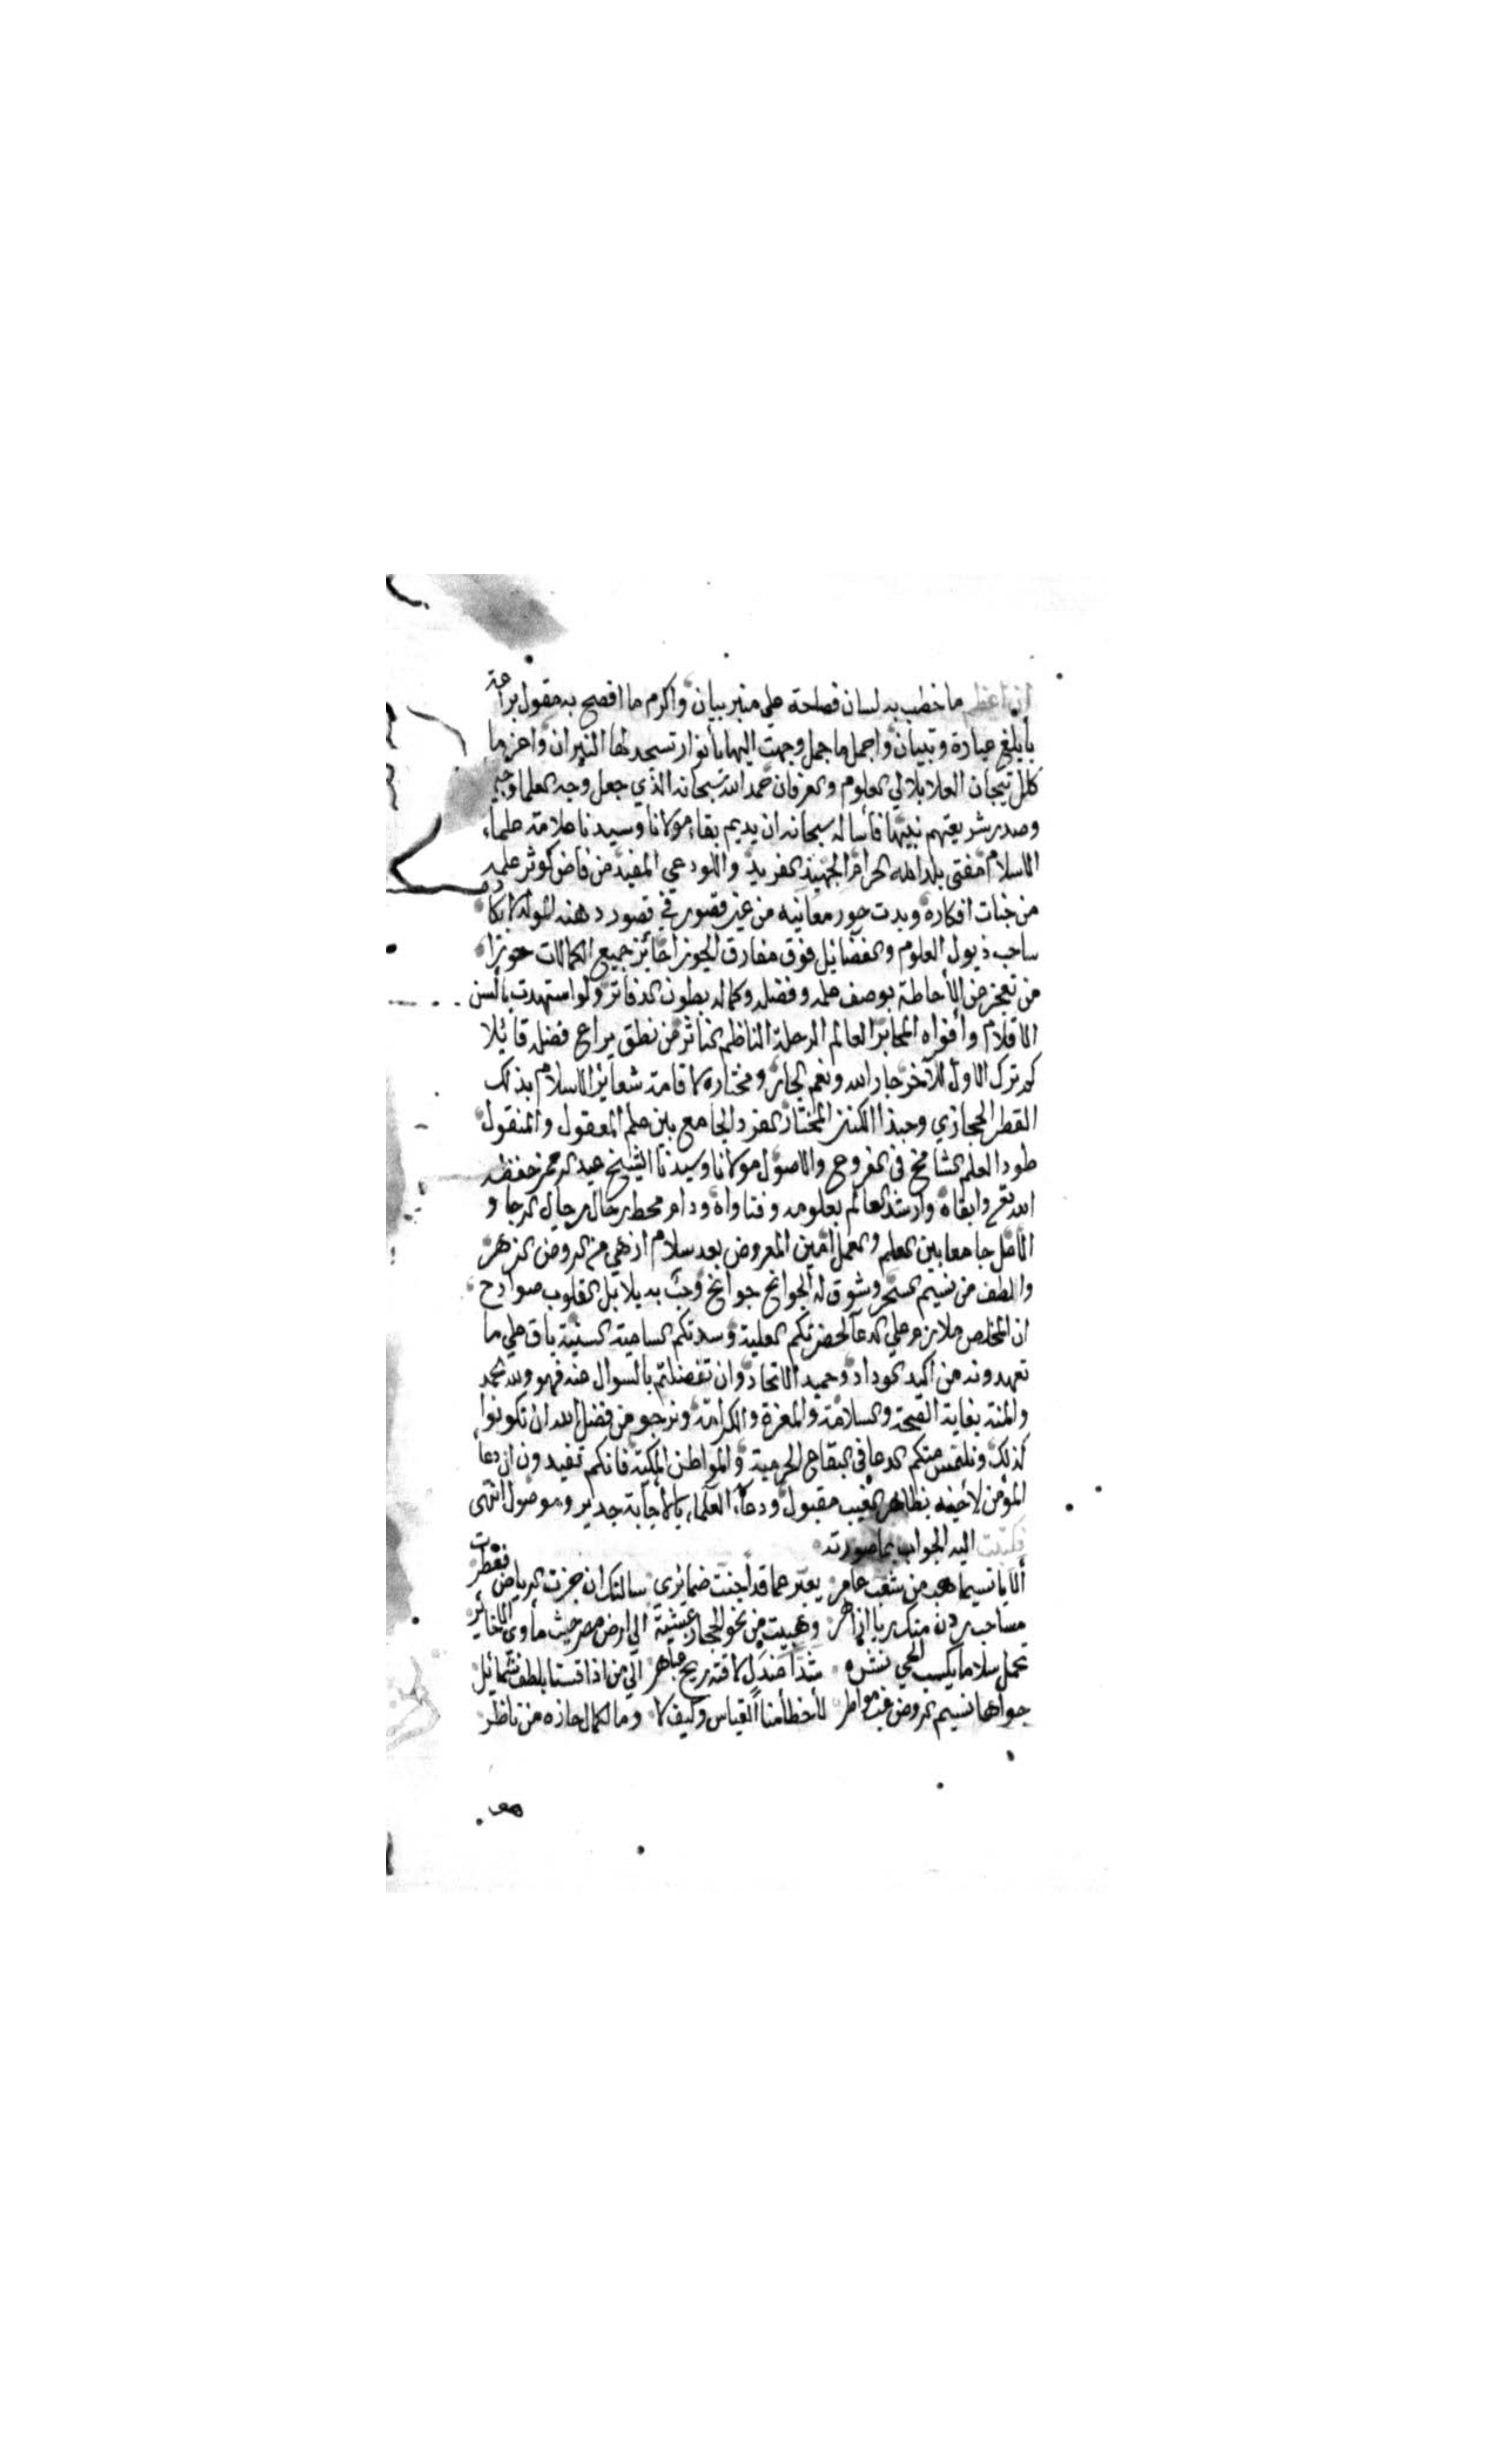 ان اعظم ما خطب به لسان فصاحة على منبر بيان واكرم ما افصح به مقول براعة
بأبلغ عبارة وتبيان واجمل ما جمل وجهت اليها بأنوار تسجد لها النيران واعز ما
كلل تيجان العلا بلالي العلوم والعرفان حمد الله سبحانه الذي جعل وجه العلما وجيها
وصدر شريعتهم نبيها فأساله سبحانه ان يديم بقاء مولانا وسيدنا علامة علماء
الاسلام مفتى بلد الله الحرام الجهبذ الفريد واللودعي المفيد من فاض كوثر علمه
من جنات افكاره وبدت حور معانيه من غير قصور في قصور ذهنه
ساحب ذيول العلوم والفضائل فوق مفارق الجوزا حائز جميع الكمالات حوزا
من تعجز عن الأحاطة بوصف علمه وفضله وكماله بطون الدفاتر ولو استمدت بألسن
الاقلام وأفواه المحابر العالم الرحلة الناظم الناثر من نطق يراع فضله قائلا
كم ترك الاول للآخر جار الله ونعم الجار ومختاره لاقامة شعائر الاسلام بذلك
القطر الحجازي وحبذا الكنز المختار المفرد الجامع بين علم المعقول والمنقول
طود العلم الشامخ فى الفروع والاصول مولانا وسيدنا الشيخ عبد الرحمن حفظه
الله تع وابقاه وارشد العالم بعلومه وفتاواه ودام محط رحال رجال الرجا و
الامل جامعا بين العلم والعمل امين المعروض بعد سلام ازهى من الروض الزهر
والطف من نسيم السحر وشوق له الجوانح جوانح وحب به بلابل القلوب صوادح
ان المخلص ملازم على الدعا لحضرتكم العلية وسدتكم السامية السنية باق على ما
تعهدونه من اكيد الوداد وحميد الاتحاد وان تفضلتم بالسوال عنه فهو ولله الحمد
والمنة بغاية الصحة والسلامة والمعزة والكرامة ونرجو من فضل الله ان تكونوا
كذلك ونلتمس منكم الدعا فى البقاع الحرمية والمواطن المكية فانكم تفيدون ان دعا
المؤمن لأخيه بظاهر الغيب مقبول ودعاء العلماء بالاجابة جدير وموصول انتهى
فكتبت اليه الجواب بما صورته
ألا يا نسيما هب من شعب عامر يعبر عما قد اجنت ضمائرى سالتك ان جزت الرياض فعطرت
مساحب ردن منك ريا ازاهر وهبيت من نحو الحجاز عشية الى ارض مصر حيث مأوى الاخائر
تحمل سلاما يكسب الحي نشره شذا مندل لاقته ريح مجاهر الى من اذا قسنا بلطف شمائل
حواها نسيم الروض غب مواطر لأخطأ منا القياس وكيف لا وما لكمال حازه من ناظر
هو